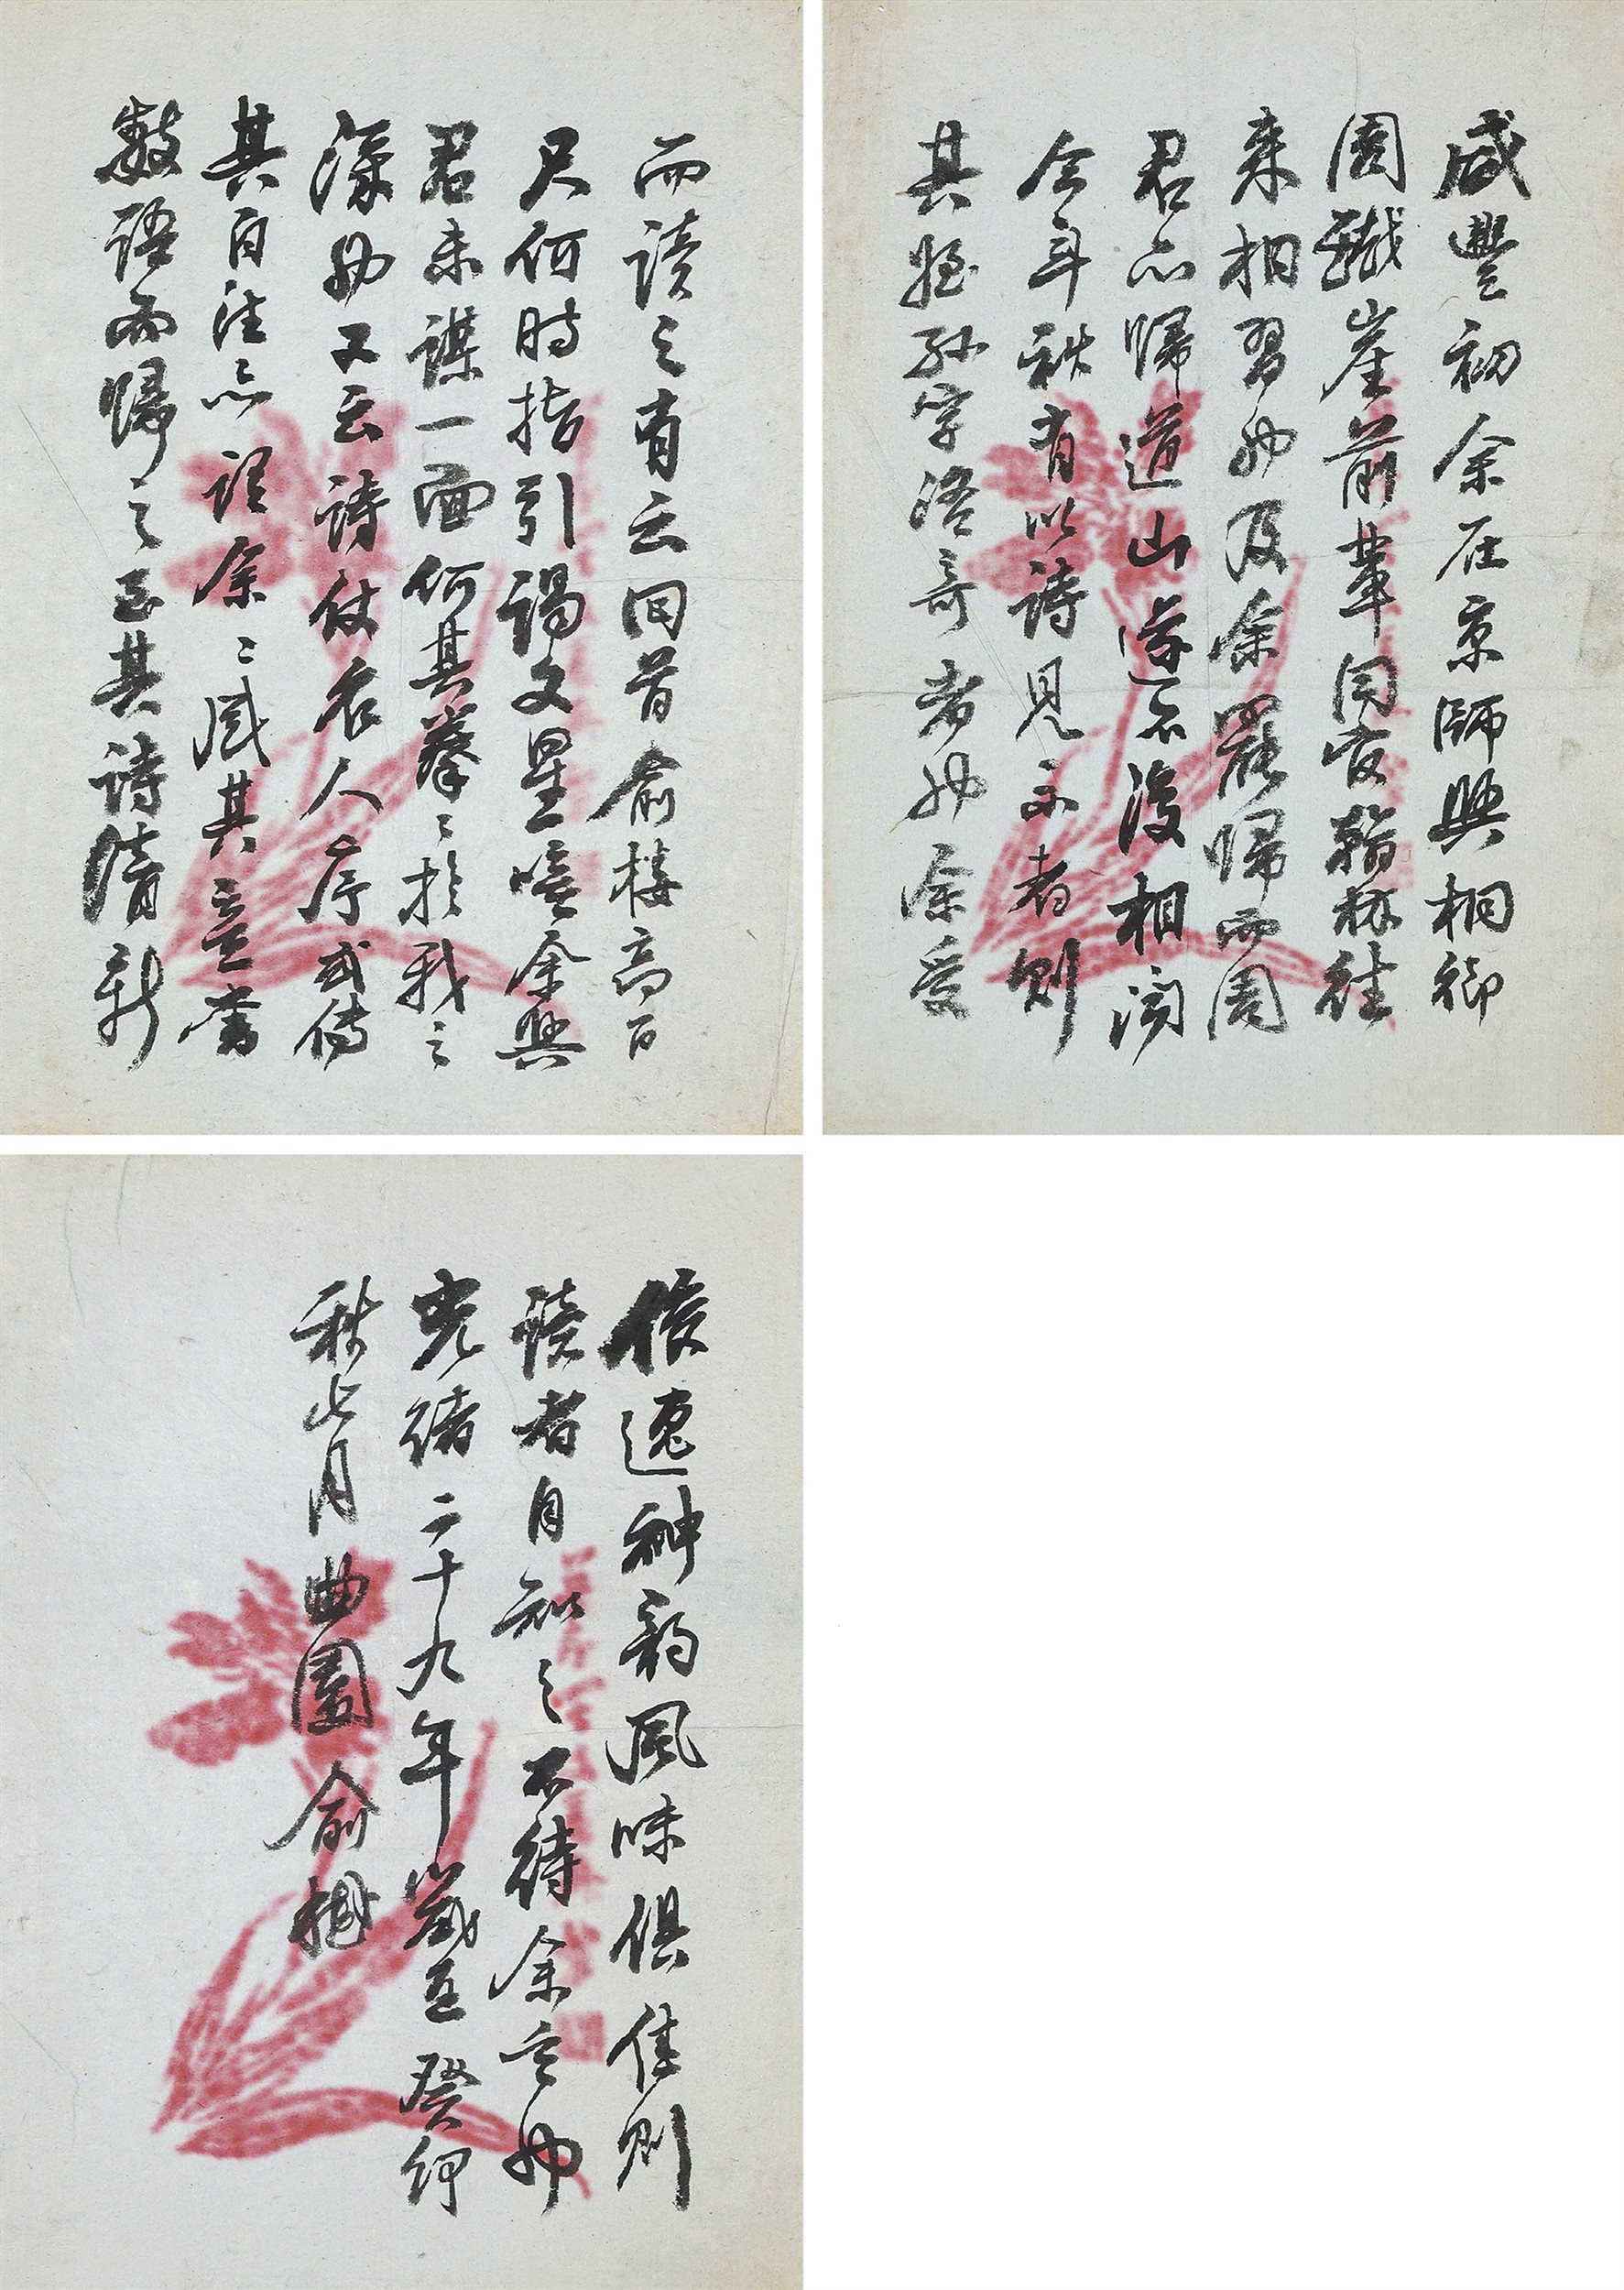 咸豐初余在京師與桐鄉
周蘋崖前輩同官翰林往
來相習也及余罷歸而周
君亦歸道山遂不復相聞
今年秋有以詩見示者則
其姪孫字浯奇者也余受
而讀之有云回首俞樓高百
尺何時指引謁文星噫余與
君未謀一面何其拳〻於我之
深也又云詩仗名人序或傳
其自注亦謂余〻感其意書
數語而歸之至其詩清新
俊逸神韵風味俱佳則
讀者自知之不待余言也
光緒二十九年歲在癸卯
秋七月曲園俞樾